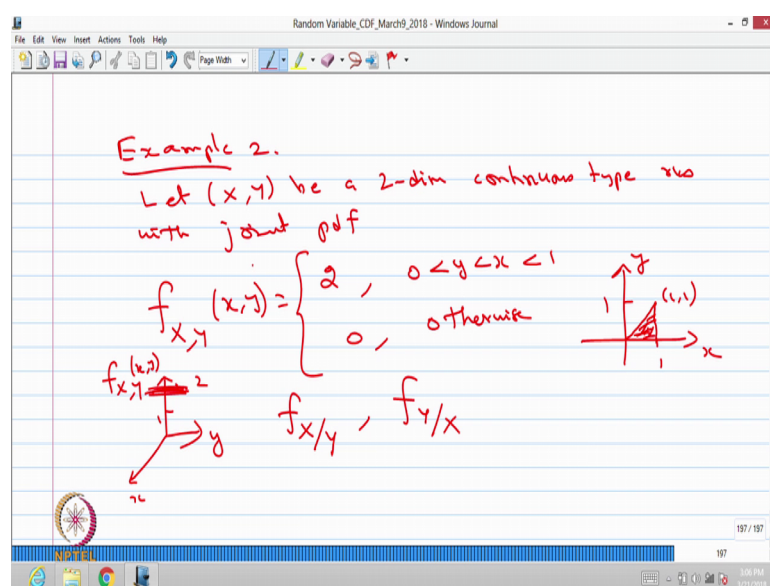 Random Variable_CDF_March9_2018 - Windows Journal
File Edit View Insert Actions Tools Help
Page Width
Example 2.
Let (X,Y) be a 2-dim continuous type rvs
with joint pdf
f_{X,Y}(x,y) = { 2, 0<y<x<1
0, otherwise
y
1
(1,1)
1
x
f_{X,Y}(x,y)
2
1
y
x
f_{X/Y}, f_{Y/X}
NPTEL
197 / 197
197
3:06 PM